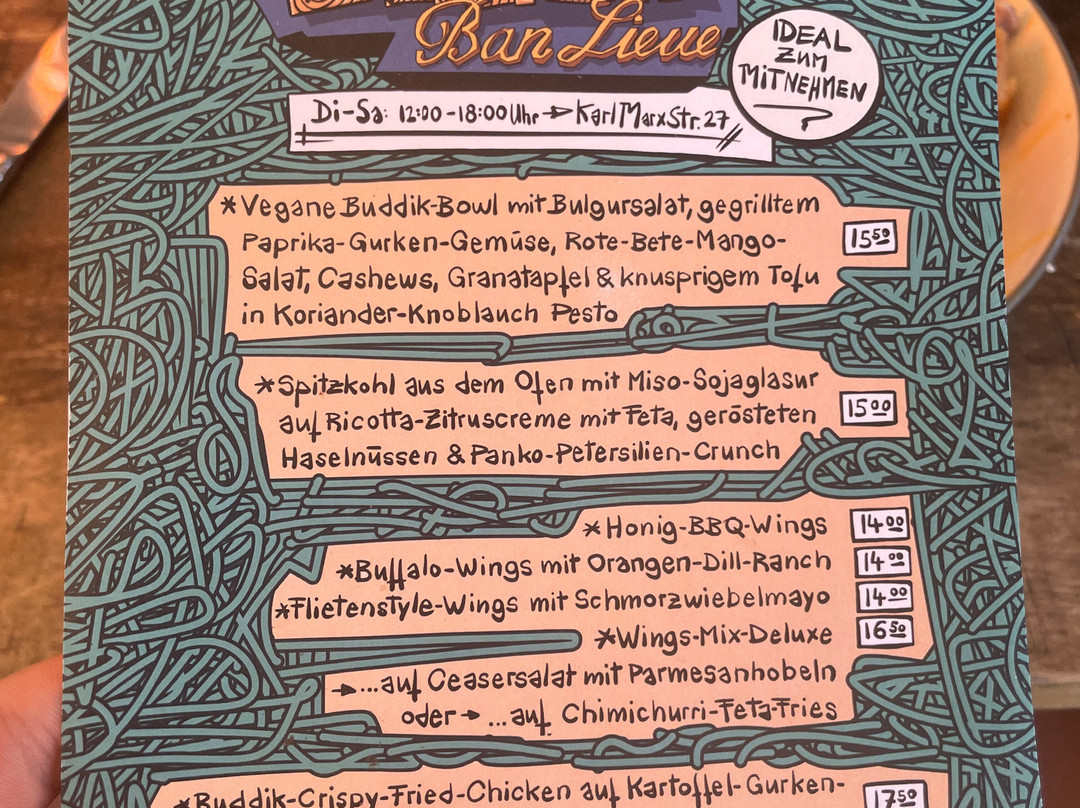 Ban Lieue
IDEAL
ZUM
MITNEHMEN
Di-Sa: 12:00-18:00 Uhr → Karl Marx Str. 27
*Vegane Buddik-Bowl mit Bulgursalat, gegrilltem
Paprika-Gurken-Gemüse, Rote-Bete-Mango-
Salat, Cashews, Granatapfel & knusprigem Tofu
in Koriander-Knoblauch Pesto
15⁵⁰
*Spitzkohl aus dem Ofen mit Miso-Sojaglasur
auf Ricotta-Zitruscreme mit Feta, gerösteten
Haselnüssen & Panko-Petersilien-Crunch
15⁰⁰
*Honig-BBQ-Wings 14⁰⁰
*Buffalo-Wings mit Orangen-Dill-Ranch 14⁰⁰
*Flietenstyle-Wings mit Schmorzwiebelmayo 14⁰⁰
*Wings-Mix-Deluxe 16⁵⁰
→...auf Ceasersalat mit Parmesanhobeln
oder → ...auf Chimichurri-Feta-Fries
*Buddik-Crispy-Fried-Chicken auf Kartoffel-Gurken- 17⁵⁰